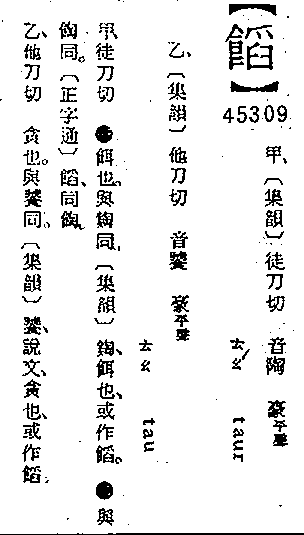 【饀】
45309
甲、〔集韻〕徒刀切 音陶 豪平聲
ㄊㄠˊ taur
乙、〔集韻〕他刀切 音饕 豪平聲
ㄊㄠ tau
甲、徒刀切 ●餌也。與䬞同。〔集韻〕䬞、餌也、或作饀。●與
䬞同。〔正字通〕饀、同䬞。
乙、他刀切 貪也。與饕同。〔集韻〕饕、說文、貪也、或作饀。